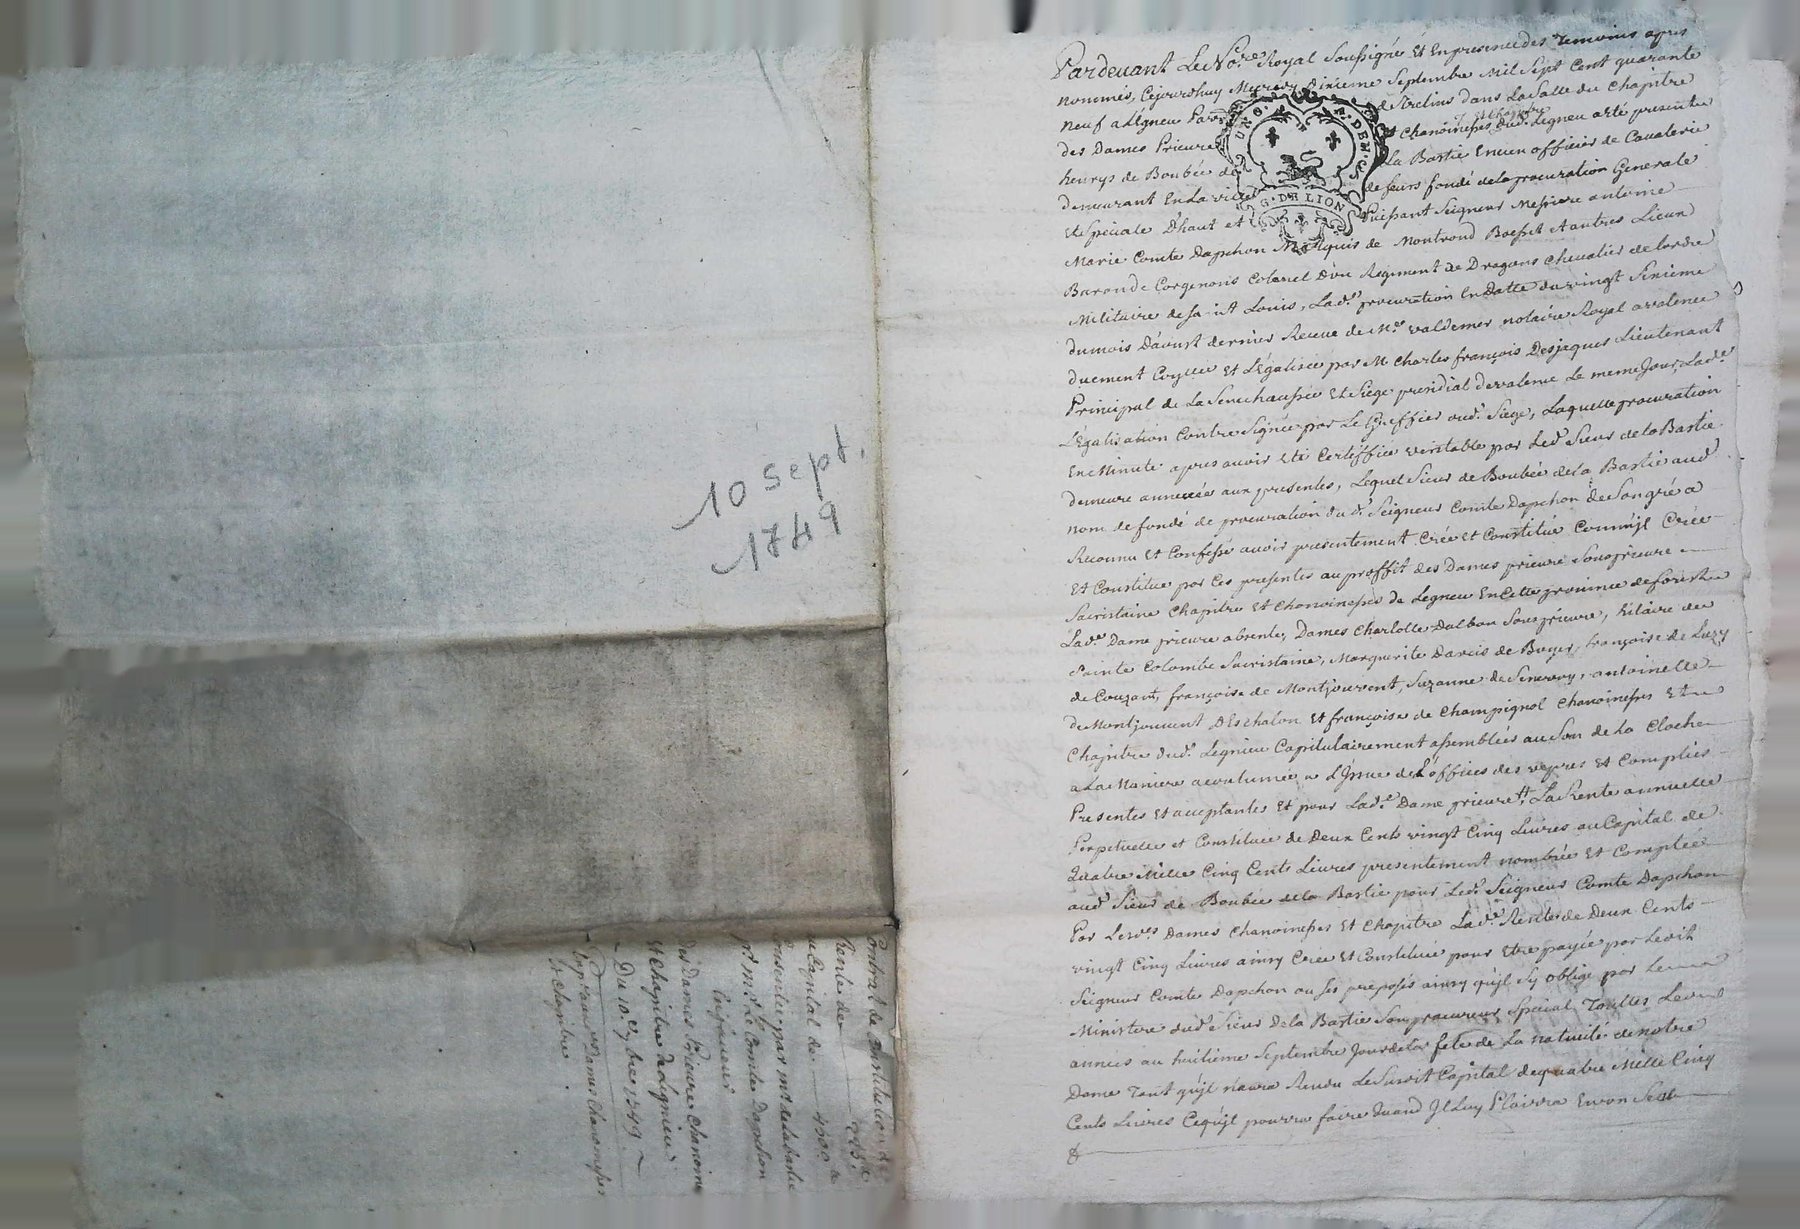 10 sept.
1749
Contrat de Constitution de
Rente de 225ᵗᵗ
au Capital de 4500ᵗᵗ
Consentie par mr de la bastie
pr. mr. Le Comte Dapchon
des Dames Prieure chanoinesses
Et Chapitre de Legnieu
Du 10e 7bre 1749
Pour Dames Chanoinesses
Et chapitre
Pardevant Le No.re Royal Soussigné Et En presence des Temoins apres
nommés, Cejourdhuy Mecredy Dixieme Septembre Mil Sept Cent quarante
Neuf a Legneu dans La Salle du Chapitre
des Dames Prieure Et Chanoinesses dud. Legneu a eté presente
henrys de Boubée de La Bastie Encien officier de Cavalerie
demeurant En La ville de feurs fondé de la procuration Generale
Et Speciale D'haut et Puissant Seigneur Messire antoine
Marie Comte Dapchon Marquis de Montrond Boesset Et autres Lieux
Baron de Corgenons Colonel D'un Regiment de Dragons Chevalier de Lordre
Militaire de saint Louis, Lad.e procuration En Datte du vingt Sixieme
du mois D'aoust dernier Receue de Me valdemer notaire Royal a valence
duement Et Légalisée par M. Charles françois Desjaques Lieutenant
Principal de La Senechaussée Et Siege presidial de valence Le meme Jour, Lad.e
Légalisation Contre Signée par Le Greffier aud. Siege, Laquelle procuration
En Minute apres avoir été Certiffiée veritable par Led. Sieur de la Bastie
demeure annexée aux presentes, Lequel Sieur de Boubée de la Bastie aud.
nom de fondé de procuration dud. Seigneur Comte Dapchon de Son gré a
Reconnu Et Confessé avoir presentement Créé Et Constitué Comm'jl Crée
Et Constitue par Ces presentes au proffit des Dames prieure Sousprieure
Sacristaine Chapitre Et Chanoinesses de Legneu En Cette province de forest
Lad.e Dame prieure absente, Dames Charlotte Dalbon Sousprieure, hilaire de
Sainte Colombe Sacristaine, Marguerite Darcis de françoise de Luzy
de Couzant, françoise de Montjouvent, Suzanne de Senevoy, antoinette
de Montjouvent D'Eschalon Et françoise de Champignol Chanoinesses Et
Chapitre dud. Legnieu Capitulairement assemblées au Son de La Cloche
a La Maniere acoutumée a L'Jssue de L'offices des vepres Et Complies
Presentes Et acceptantes Et pour Lad.e Dame prieure, La Rente annuelle
Perpetuelle et Constituée de Deux Cents vingt Cinq Livres au Capital de
Quatre Mille Cinq Cents Livres presentement nombrée Et Comptée
aud. Sieur de Boubée de la Bastie pour Led. Seigneur Comte Dapchon
Par Lesd.es Dames Chanoinesses Et Chapitre Lad.e Rente de Deux Cents
vingt Cinq Livres ainsy Créée Et Constituée pour Etre payée par Ledit
Seigneur Comte Dapchon ou ses preposés ainsy qu'jl S'y oblige par Le
Ministere dud. Sieur De la Bastie Son procureur Special Toutes Les
années au huitieme Septembre Jour de la fete de La nativité de notre
Dame Tant qu'jl n'aura Rendu Le Susdit Capital de quatre Mille Cinq
Cents Livres Ce qu'jl pourra faire quand Jl Luy Plairra En un Seul
U R G . DEN.S
G. DE LION